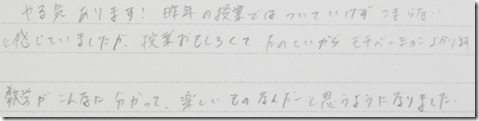 やる気 あります! 昨年の授業では ついていけず つまらない
と感じていましたが、授業おもしろくて たのしいから モチベーション 上がり
数学が こんなに 分かって、楽しい ものなんだーと思うようになりました.